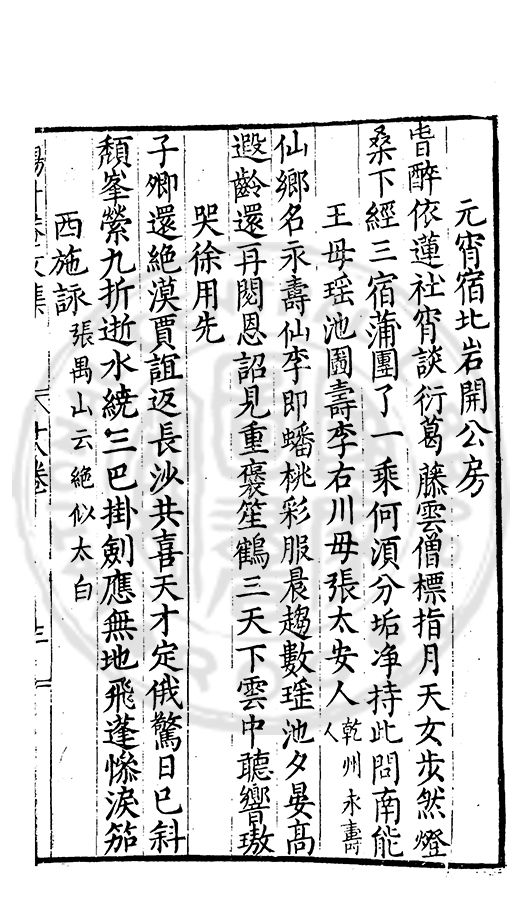 元宵宿北岩開公房
昔醉依蓮社宵談衍葛藤雲僧標指月天女步然燈
桑下經三宿蒲團了一乘何湏分垢净持此問南能
王母瑶池圖壽李右川母張太安人乾州永壽人
仙鄉名永壽仙李即蟠桃彩服晨趨數瑶池夕晏高
遐齡還再閱恩詔見重褒笙鶴三天下雲中聽響璈
哭徐用先
子卿還絶漠賈誼返長沙共喜天才定俄驚日已斜
頽峯縈九折逝水繞三巴掛劍應無地飛蓬慘淚笳
西施詠張禺山云絶似太白